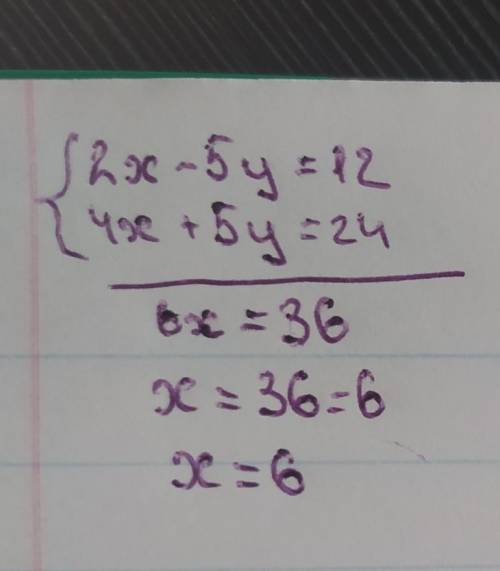 {2x - 5y = 12
4x + 5y = 24
6x = 36
x = 36 = 6
x = 6